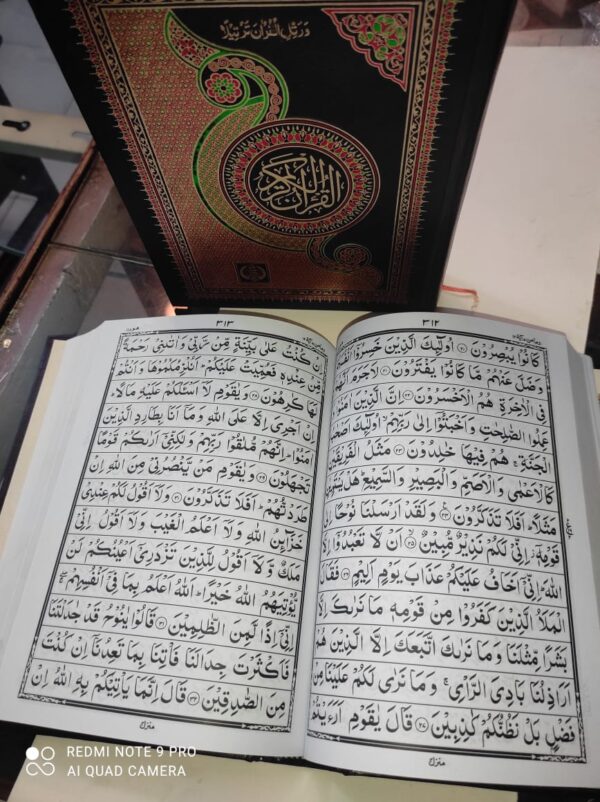 وَرَتِّلِ الْقُرْاٰنَ تَرْتِيْلًا
القرآن الكريم
٣١٢
كَانُوْا يُبْصِرُوْنَ ۝٢٠ اُولٰٓئِكَ الَّذِيْنَ خَسِرُوْٓا اَنْفُسَهُمْ
وَضَلَّ عَنْهُمْ مَّا كَانُوْا يَفْتَرُوْنَ ۝٢١ لَاجَرَمَ اَنَّهُمْ
فِي الْاٰخِرَةِ هُمُ الْاَخْسَرُوْنَ ۝٢٢ اِنَّ الَّذِيْنَ اٰمَنُوْا وَ
عَمِلُوا الصّٰلِحٰتِ وَاَخْبَتُوْٓا اِلٰى رَبِّهِمْ اُولٰٓئِكَ اَصْحٰبُ
الْجَنَّةِ ۚ هُمْ فِيْهَا خٰلِدُوْنَ ۝٢٣ مَثَلُ الْفَرِيْقَيْنِ
كَالْاَعْمٰى وَالْاَصَمِّ وَالْبَصِيْرِ وَالسَّمِيْعِ ؕ هَلْ يَسْتَوِيٰنِ
مَثَلًا ؕ اَفَلَا تَذَكَّرُوْنَ ۝٢٤ وَلَقَدْ اَرْسَلْنَا نُوْحًا اِلٰى
قَوْمِهٖٓ ؗ اِنِّيْ لَكُمْ نَذِيْرٌ مُّبِيْنٌ ۝٢٥ اَنْ لَّا تَعْبُدُوْٓا اِلَّا
اللّٰهَ ؕ اِنِّيْٓ اَخَافُ عَلَيْكُمْ عَذَابَ يَوْمٍ اَلِيْمٍ ۝٢٦ فَقَالَ
الْمَلَاُ الَّذِيْنَ كَفَرُوْا مِنْ قَوْمِهٖ مَا نَرٰىكَ اِلَّا
بَشَرًا مِّثْلَنَا وَمَا نَرٰىكَ اتَّبَعَكَ اِلَّا الَّذِيْنَ هُمْ
اَرَاذِلُنَا بَادِيَ الرَّاْيِ ۚ وَمَا نَرٰى لَكُمْ عَلَيْنَا مِنْ
فَضْلٍۭ بَلْ نَظُنُّكُمْ كٰذِبِيْنَ ۝٢٧ قَالَ يٰقَوْمِ اَرَءَيْتُمْ
منزل
٣١٣
اِنْ كُنْتُ عَلٰى بَيِّنَةٍ مِّنْ رَّبِّيْ وَاٰتٰىنِيْ رَحْمَةً
مِّنْ عِنْدِهٖ فَعُمِّيَتْ عَلَيْكُمْ ؕ اَنُلْزِمُكُمُوْهَا وَاَنْتُمْ
لَهَا كٰرِهُوْنَ ۝٢٨ وَيٰقَوْمِ لَآ اَسْـَٔلُكُمْ عَلَيْهِ مَالًا ؕ
اِنْ اَجْرِيَ اِلَّا عَلَى اللّٰهِ وَمَآ اَنَا بِطَارِدِ الَّذِيْنَ
اٰمَنُوْا ؕ اِنَّهُمْ مُّلٰقُوْا رَبِّهِمْ وَلٰكِنِّيْٓ اَرٰىكُمْ قَوْمًا
تَجْهَلُوْنَ ۝٢٩ وَيٰقَوْمِ مَنْ يَّنْصُرُنِيْ مِنَ اللّٰهِ اِنْ
طَرَدْتُّهُمْ ؕ اَفَلَا تَذَكَّرُوْنَ ۝٣٠ وَلَآ اَقُوْلُ لَكُمْ عِنْدِيْ
خَزَآئِنُ اللّٰهِ وَلَآ اَعْلَمُ الْغَيْبَ وَلَآ اَقُوْلُ اِنِّيْ
مَلَكٌ وَّلَآ اَقُوْلُ لِلَّذِيْنَ تَزْدَرِيْٓ اَعْيُنُكُمْ لَنْ
يُّؤْتِيَهُمُ اللّٰهُ خَيْرًا ؕ اَللّٰهُ اَعْلَمُ بِمَا فِيْٓ اَنْفُسِهِمْ ۚ
اِنِّيْٓ اِذًا لَّمِنَ الظّٰلِمِيْنَ ۝٣١ قَالُوْا يٰنُوْحُ قَدْ جٰدَلْتَنَا
فَاَكْثَرْتَ جِدَالَنَا فَاْتِنَا بِمَا تَعِدُنَآ اِنْ كُنْتَ
مِنَ الصّٰدِقِيْنَ ۝٣٢ قَالَ اِنَّمَا يَاْتِيْكُمْ بِهِ اللّٰهُ اِنْ
منزل
REDMI NOTE 9 PRO
AI QUAD CAMERA